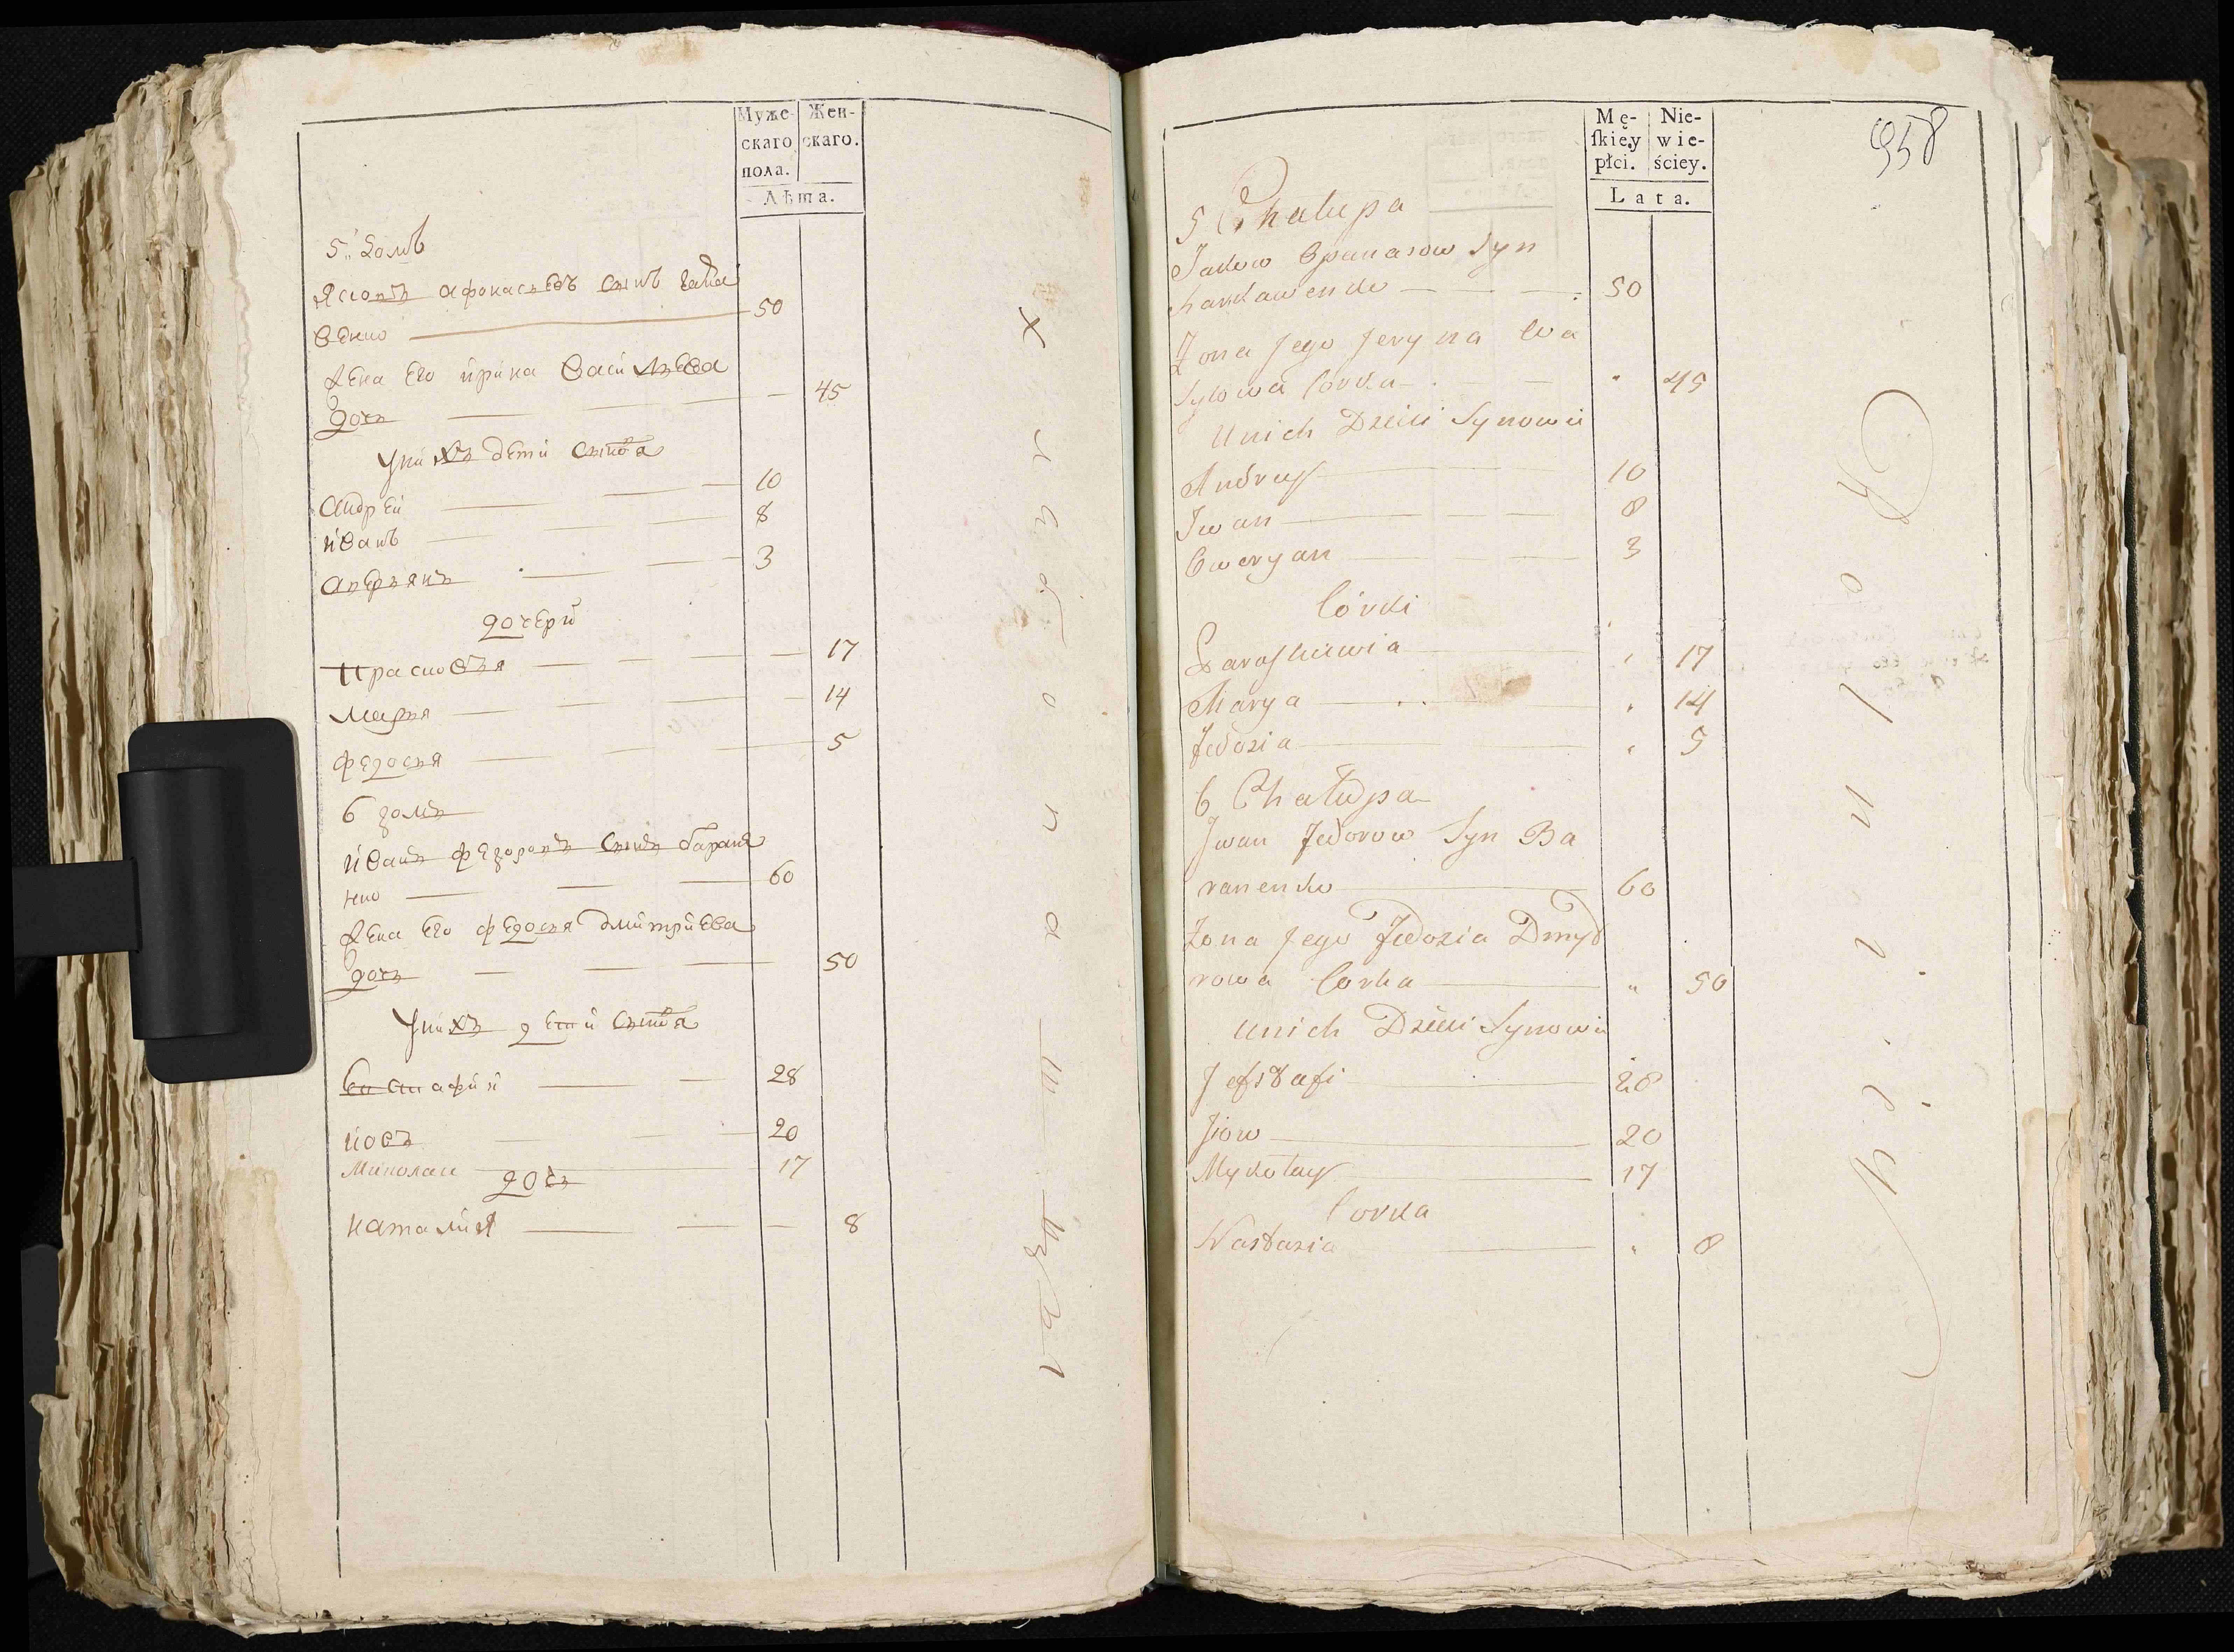 Муже-
скаго
пола.
Жен-
скаго.
Лѣта.
5. домъ
Яковъ афонасьевъ сынъ
венко 50
жена его ирина васильева
дочь 45
у нихъ дети сыновя
андрей 10
иванъ 8
аверьянъ 3
дочери
прасковья 17
марья 14
федосья 5
6 домъ
иванъ федоровъ сынъ баране
нко 60
жена его федосья дмитриева
дочь 50
у нихъ дети сыновя
евстафий 28
иовъ 20
миколаи 17
дочь
наталия 8
Mę-
skiéy
płci.
Nie-
wie-
ściey.
Lata.
958
5 Chałupa
Jakow Opanasow Syn
50
Zona Jego Jeryna Wa
sylowa Corka " 45
Unich Dzieci Synowie
Andrey 10
Iwan 8
Oweryan 3
Córki
Paraskiewia " 17
Marya " 14
Fedozia " 5
6 Chałupa
Iwan Fedorow Syn Ba
ranenko 60
Zona Jego Fedozia Dmyt
rowa Corka " 50
unich Dzieci Synowie
Jefstafi 28
Jiow 20
Mykołay 17
Corka
Nastazia " 8